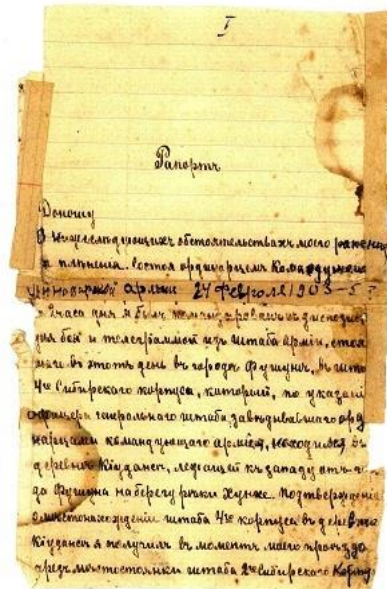 I
Рапортъ
Доношу
О нижеслѣдующихъ обстоятельствахъ моего ранен
и плѣненія. Состоя ординарцемъ Командующаго
арміей 24 февраля 190
часа дня я былъ командированъ съ диспози
для боя и телеграммой изъ штаба арміи, стоя
въ этотъ день въ городѣ Фушунѣ, въ шта
4го Сибирскаго корпуса, который, по указані
офицера генеральнаго штаба завѣдывавшаго орд
нарцами командующаго арміей, находился въ
деревнѣ Кіузанъ, лежащей къ западу отъ го
да Фушуна на берегу рѣки Хунхе. Подтвержденіе
о мѣстонахожденіи штаба 4го корпуса въ деревнѣ
я получилъ въ моментъ моего проѣзда
предъ мѣстостоянки штаба 2го Сибирскаго Корпу